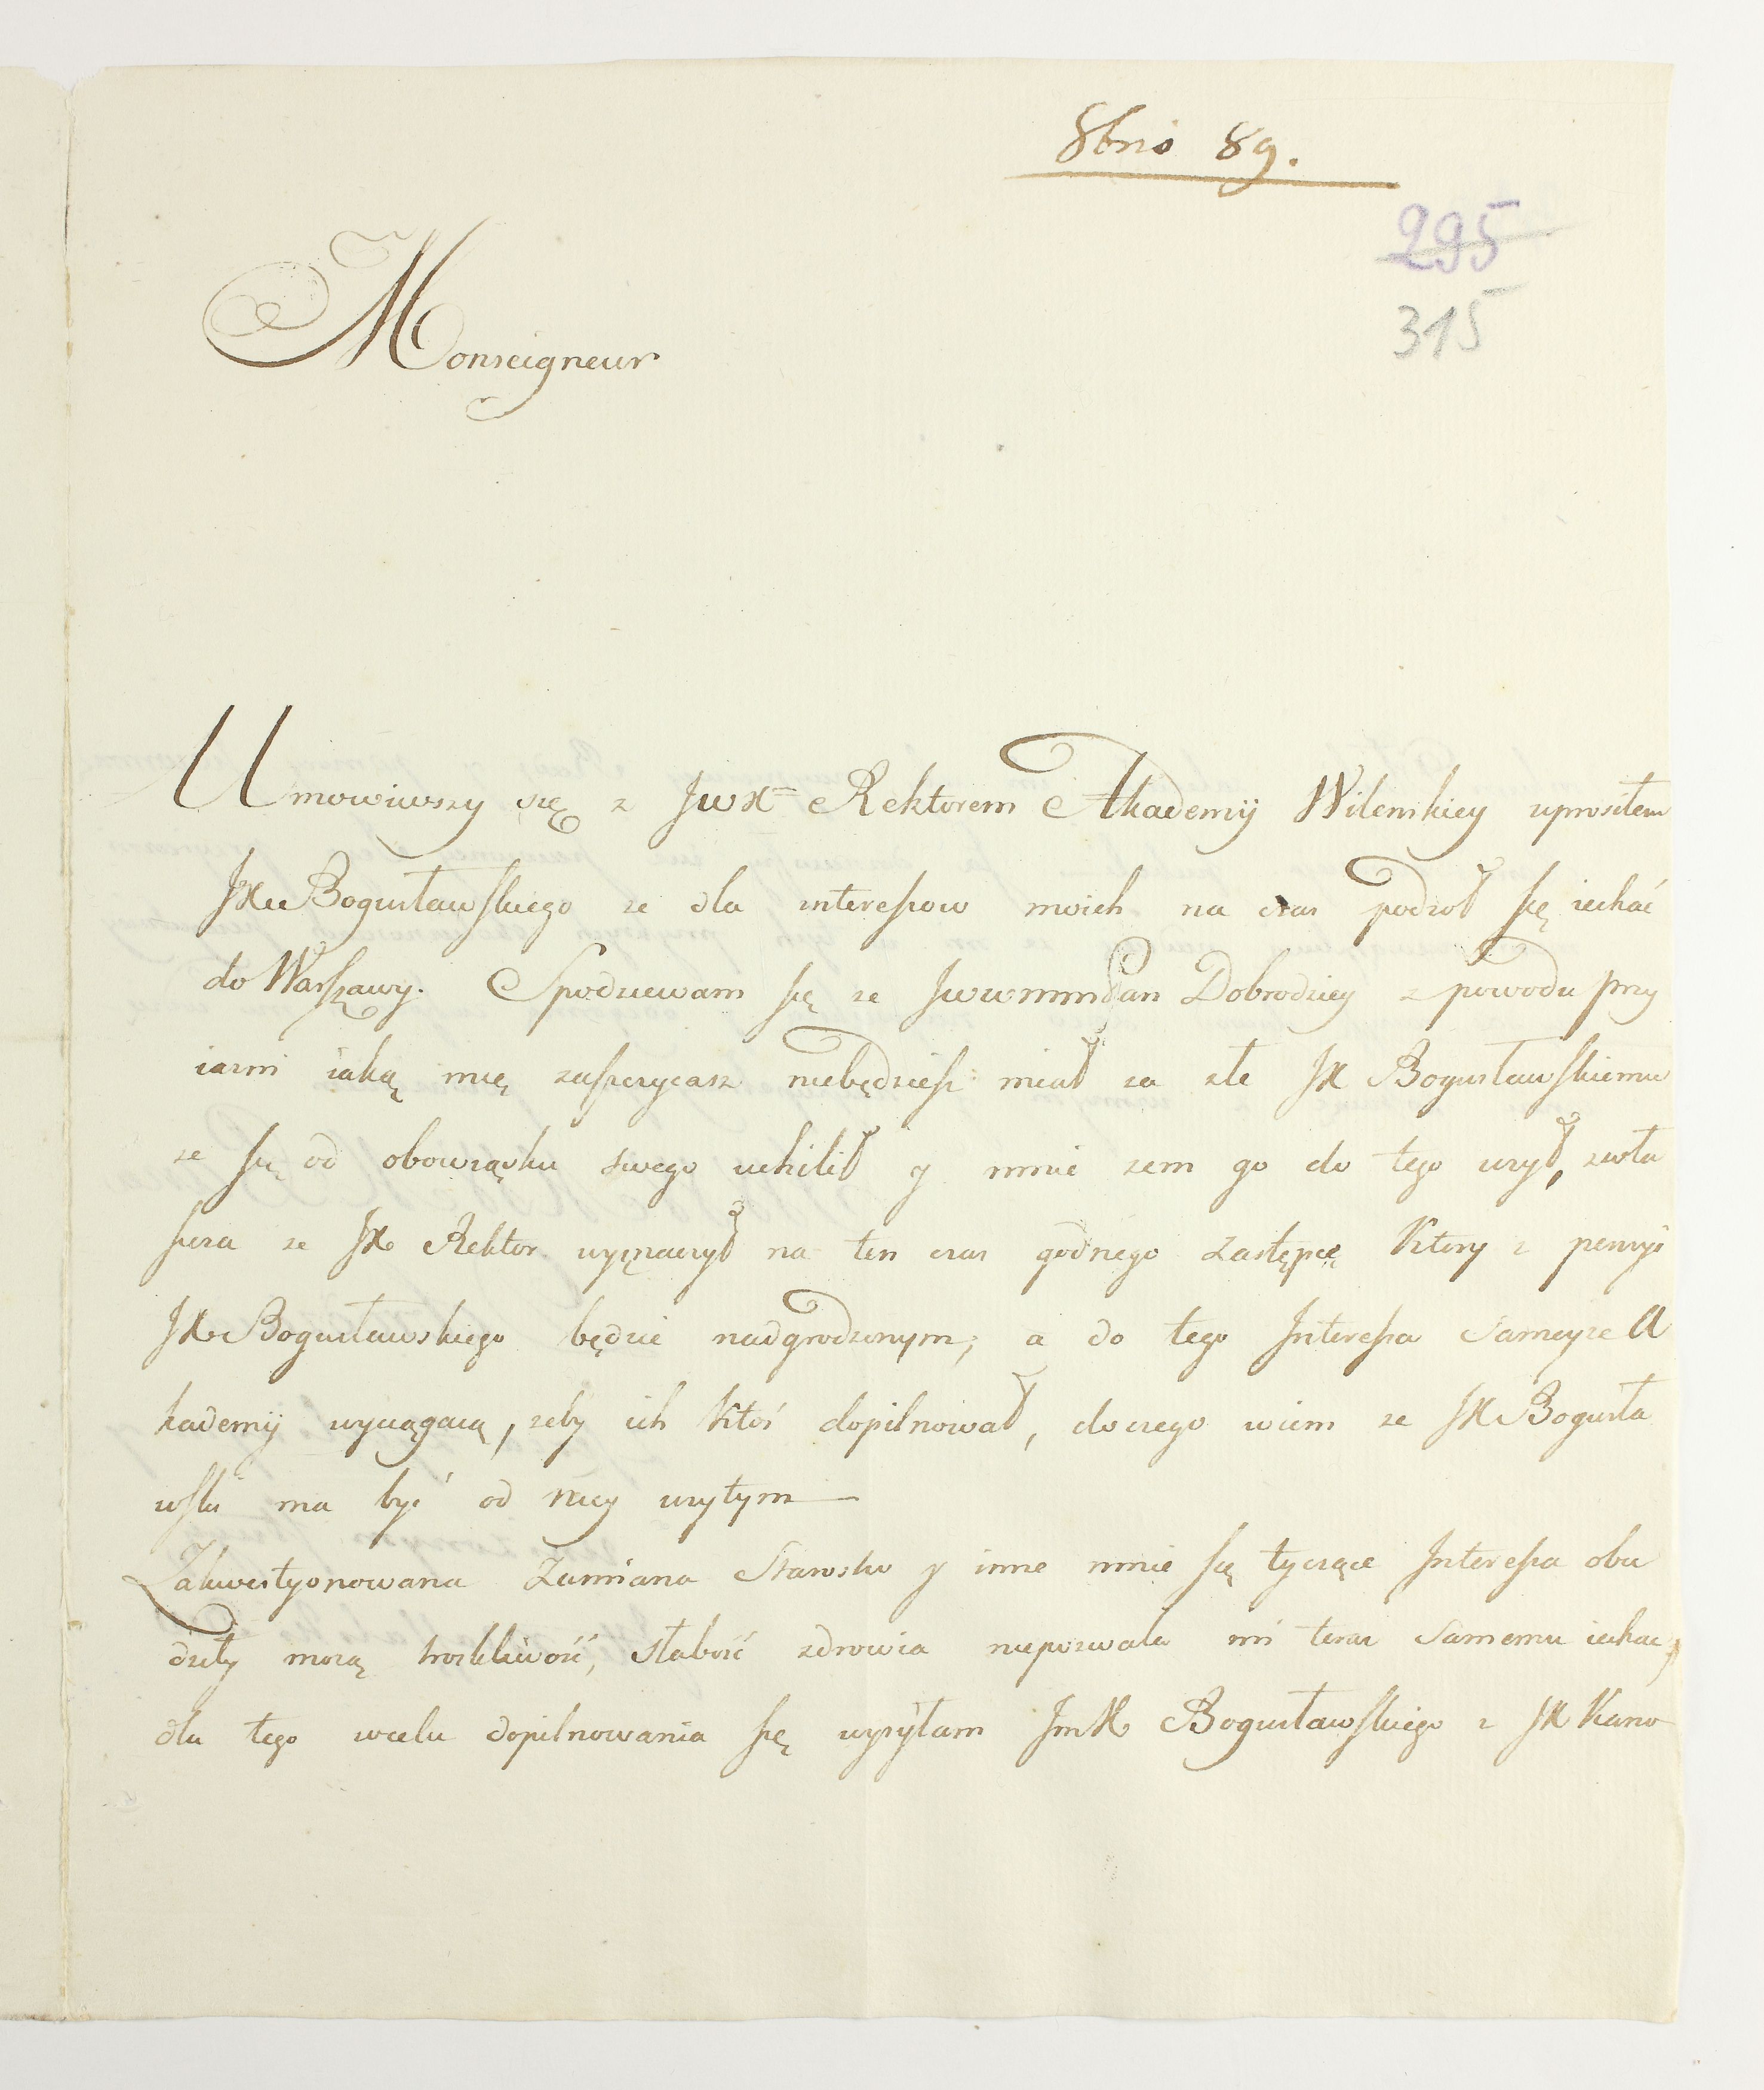 8bris 89.
295
315
Monseigneur
Umowiwszy się z JWX Rektorem Akademij Wilenskiey uprosiłem
JX Bogusławskiego ze dla interessow moich na czas podioł się iechać
do Warszawy. Spodziewam się ze JWWMMPan Dobrodziey z powodu przy
iazni iaką mię zaszczycasz niebędziesz miał za złe JX Bogusławskiemu
ze się od obowiązku swego uchilił y mnie zem go do tego użył, zwła
szcza ze JX Rektor wyznaczył na ten czas godnego zastępcę Ktory z pensyi
JX Bogusławskiego będzie nadgrodzonym; a do tego Interessa Sameyze A
kademij wyciągaią, zeby ich Ktoś dopilnował, do czego wiem ze JX Bogusła
wski ma być od niey użytym
Zakwestyonowana Zamiana Starostw y inne mnie się tyczące Interessa obu
dziły moią troskliwość, słabość zdrowia niepozwala mi teraz Samemu iechac,
dla tego wcelu dopilnowania się wysyłam JmX Bogusławskiego z JX Kano